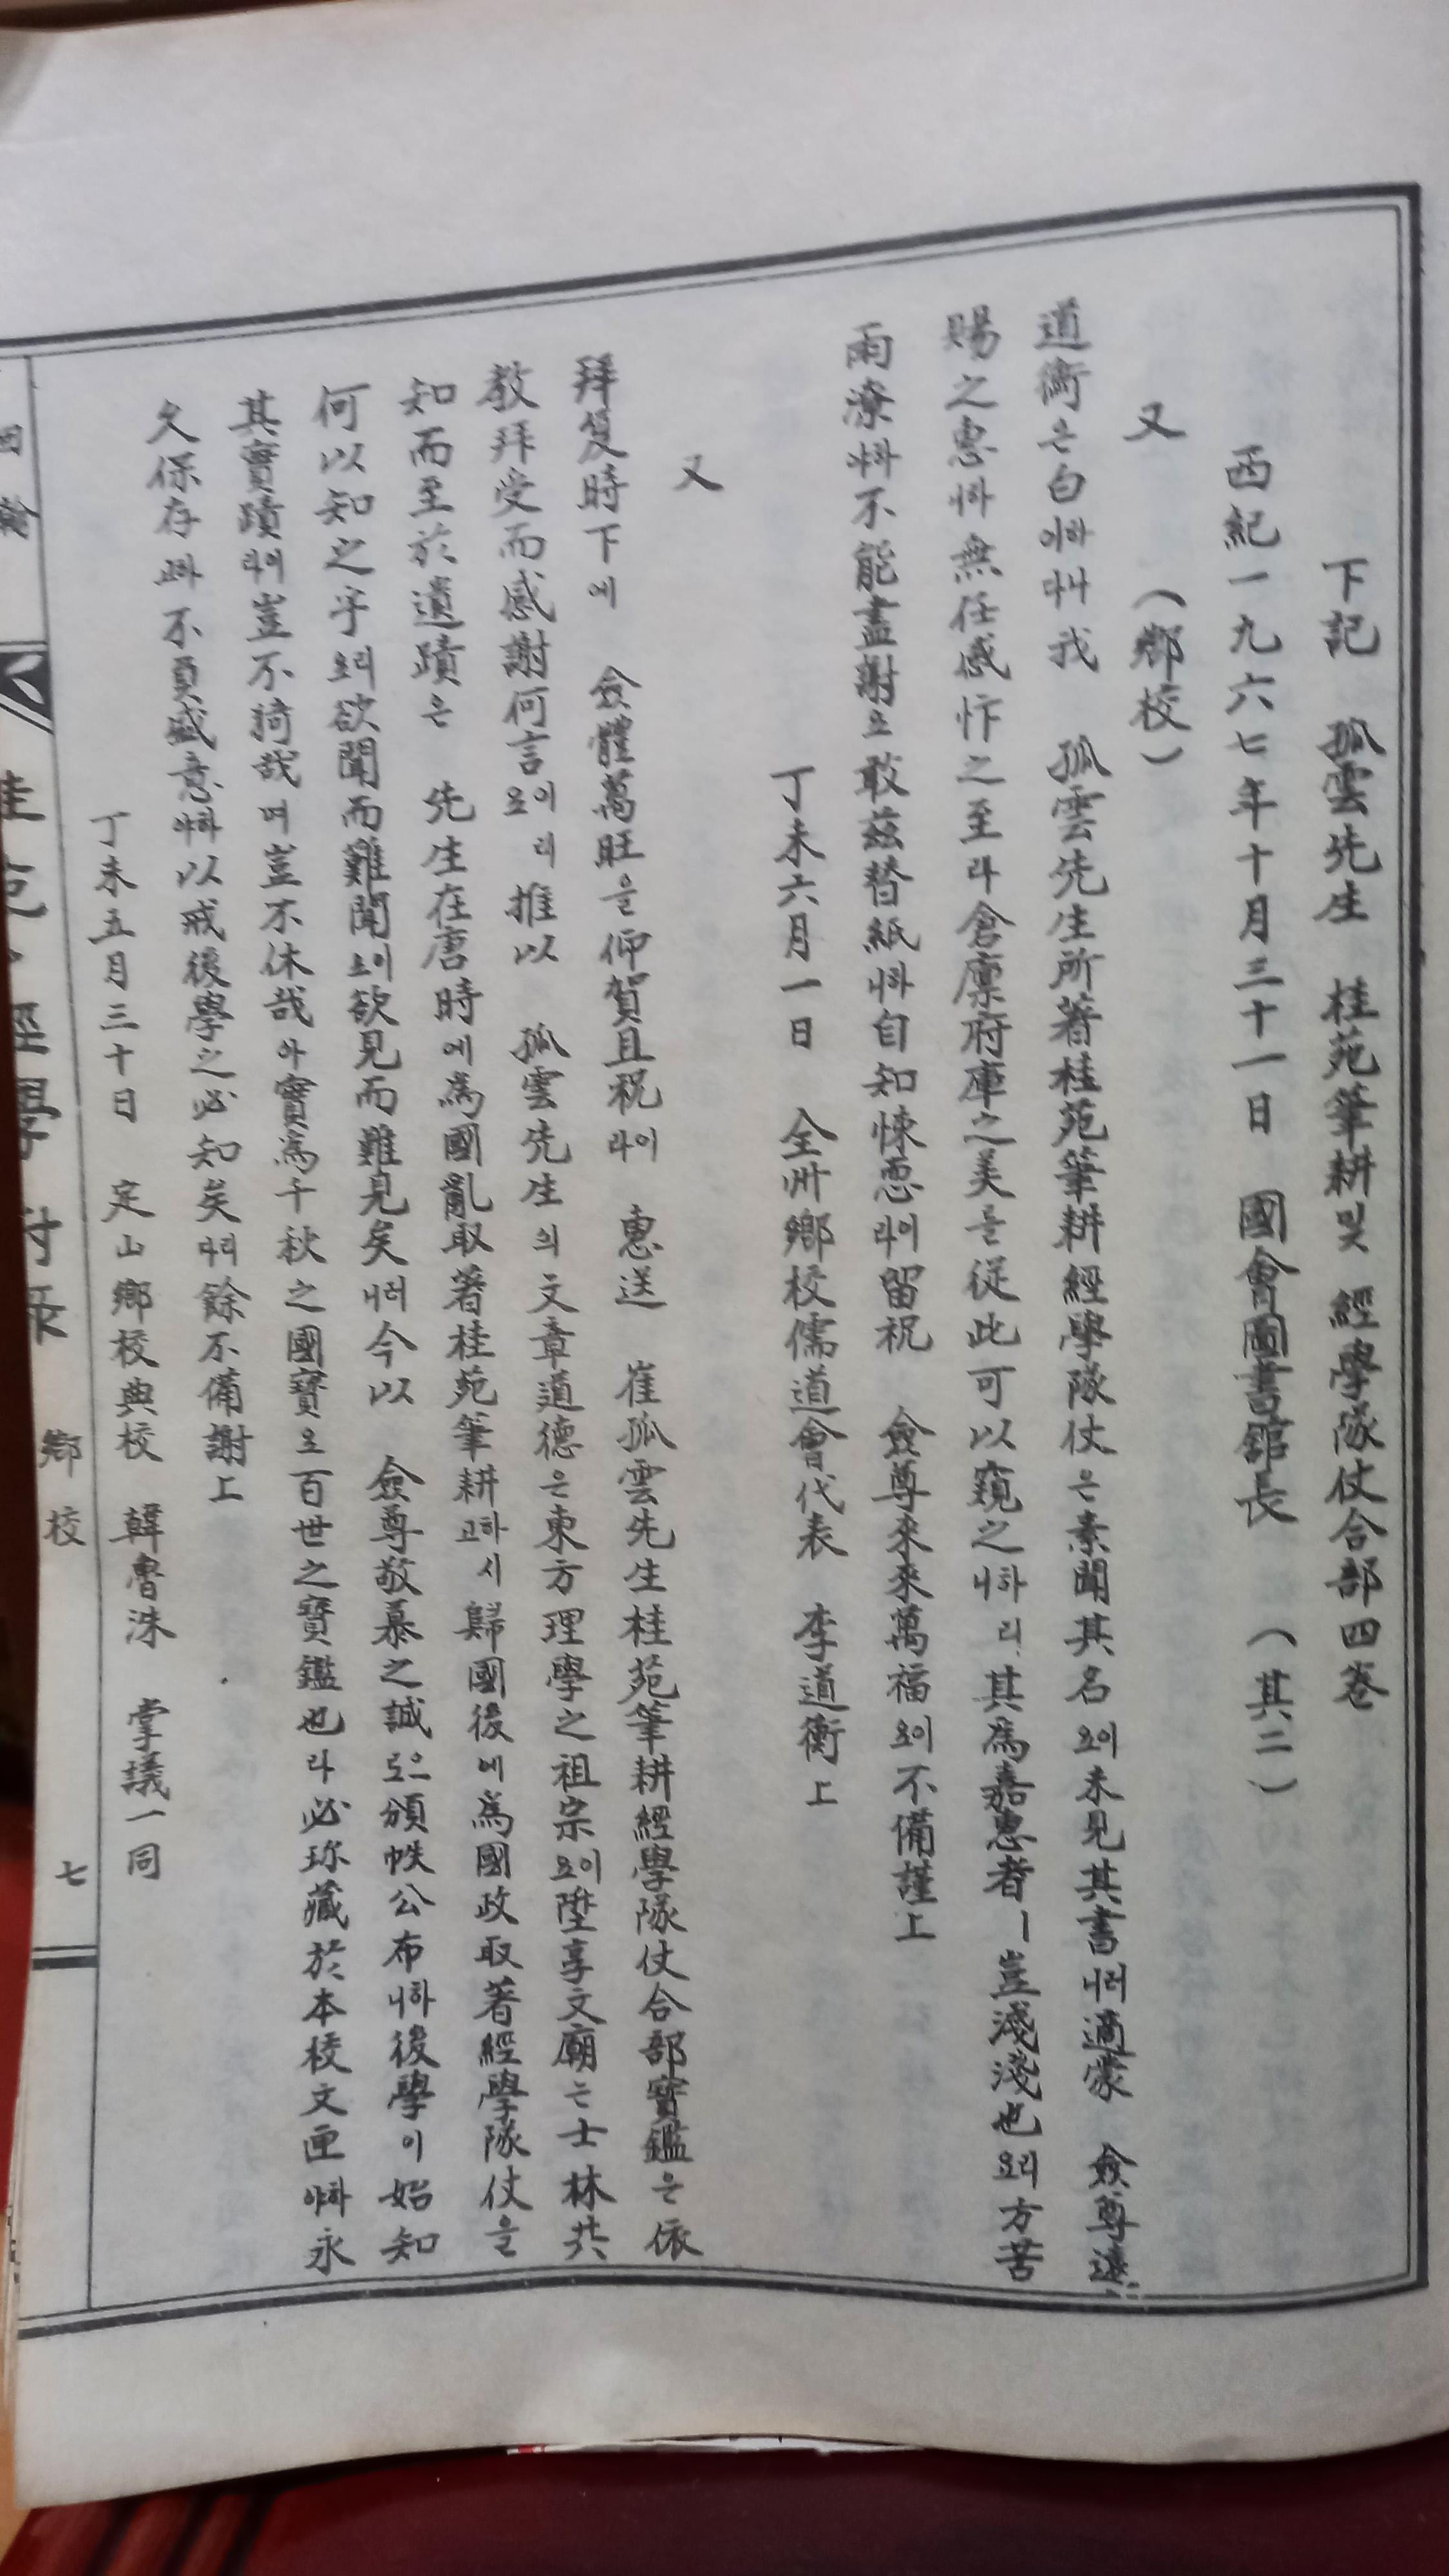 下記 孤雲先生 桂苑筆耕및 經學隊仗合部四卷
西紀一九六七年十月三十一日 國會圖書館長 (其二)
又 (鄕校)
道衡은白이하다나我 孤雲先生所著桂苑筆耕經學隊仗은素聞其名요이未見其書니러適蒙 僉尊遠
賜之惠하니無任感忭之至라倉廩府庫之美를從此可以窺之니하리其爲嘉惠者ㅣ豈淺淺也요리方苦
雨潦하야不能盡謝요敢玆替紙하니自知悚恧라이留祝 僉尊來來萬福요이不備謹上
丁未六月一日 全州鄕校儒道會代表 李道衡上
又
拜芨時下에 僉體萬旺을仰賀且祝라이 惠送 崔孤雲先生桂苑筆耕經學隊仗合部寶鑑은依
敎拜受而感謝何言요이리推以 孤雲先生의文章道德은東方理學之祖宗요이陞享文廟는士林共
知而至於遺蹟은 先生在唐時에爲國亂取著桂苑筆耕고하시歸國後에爲國政取著經學隊仗을
何以知之乎요리欲聞而難聞요이欲見而難見矣니러今以 僉尊敬慕之誠으로頒帙公布니하後學이始知
其實蹟라이豈不猗哉며豈不休哉아實爲千秋之國寶요百世之寶鑑也라必珍藏於本校文匣하야永
久保存과하不負盛意하야以戒後學之必知矣다리餘不備謝上
丁未五月三十日 定山鄕校典校 韓魯洙 掌議一同
鄕校 七